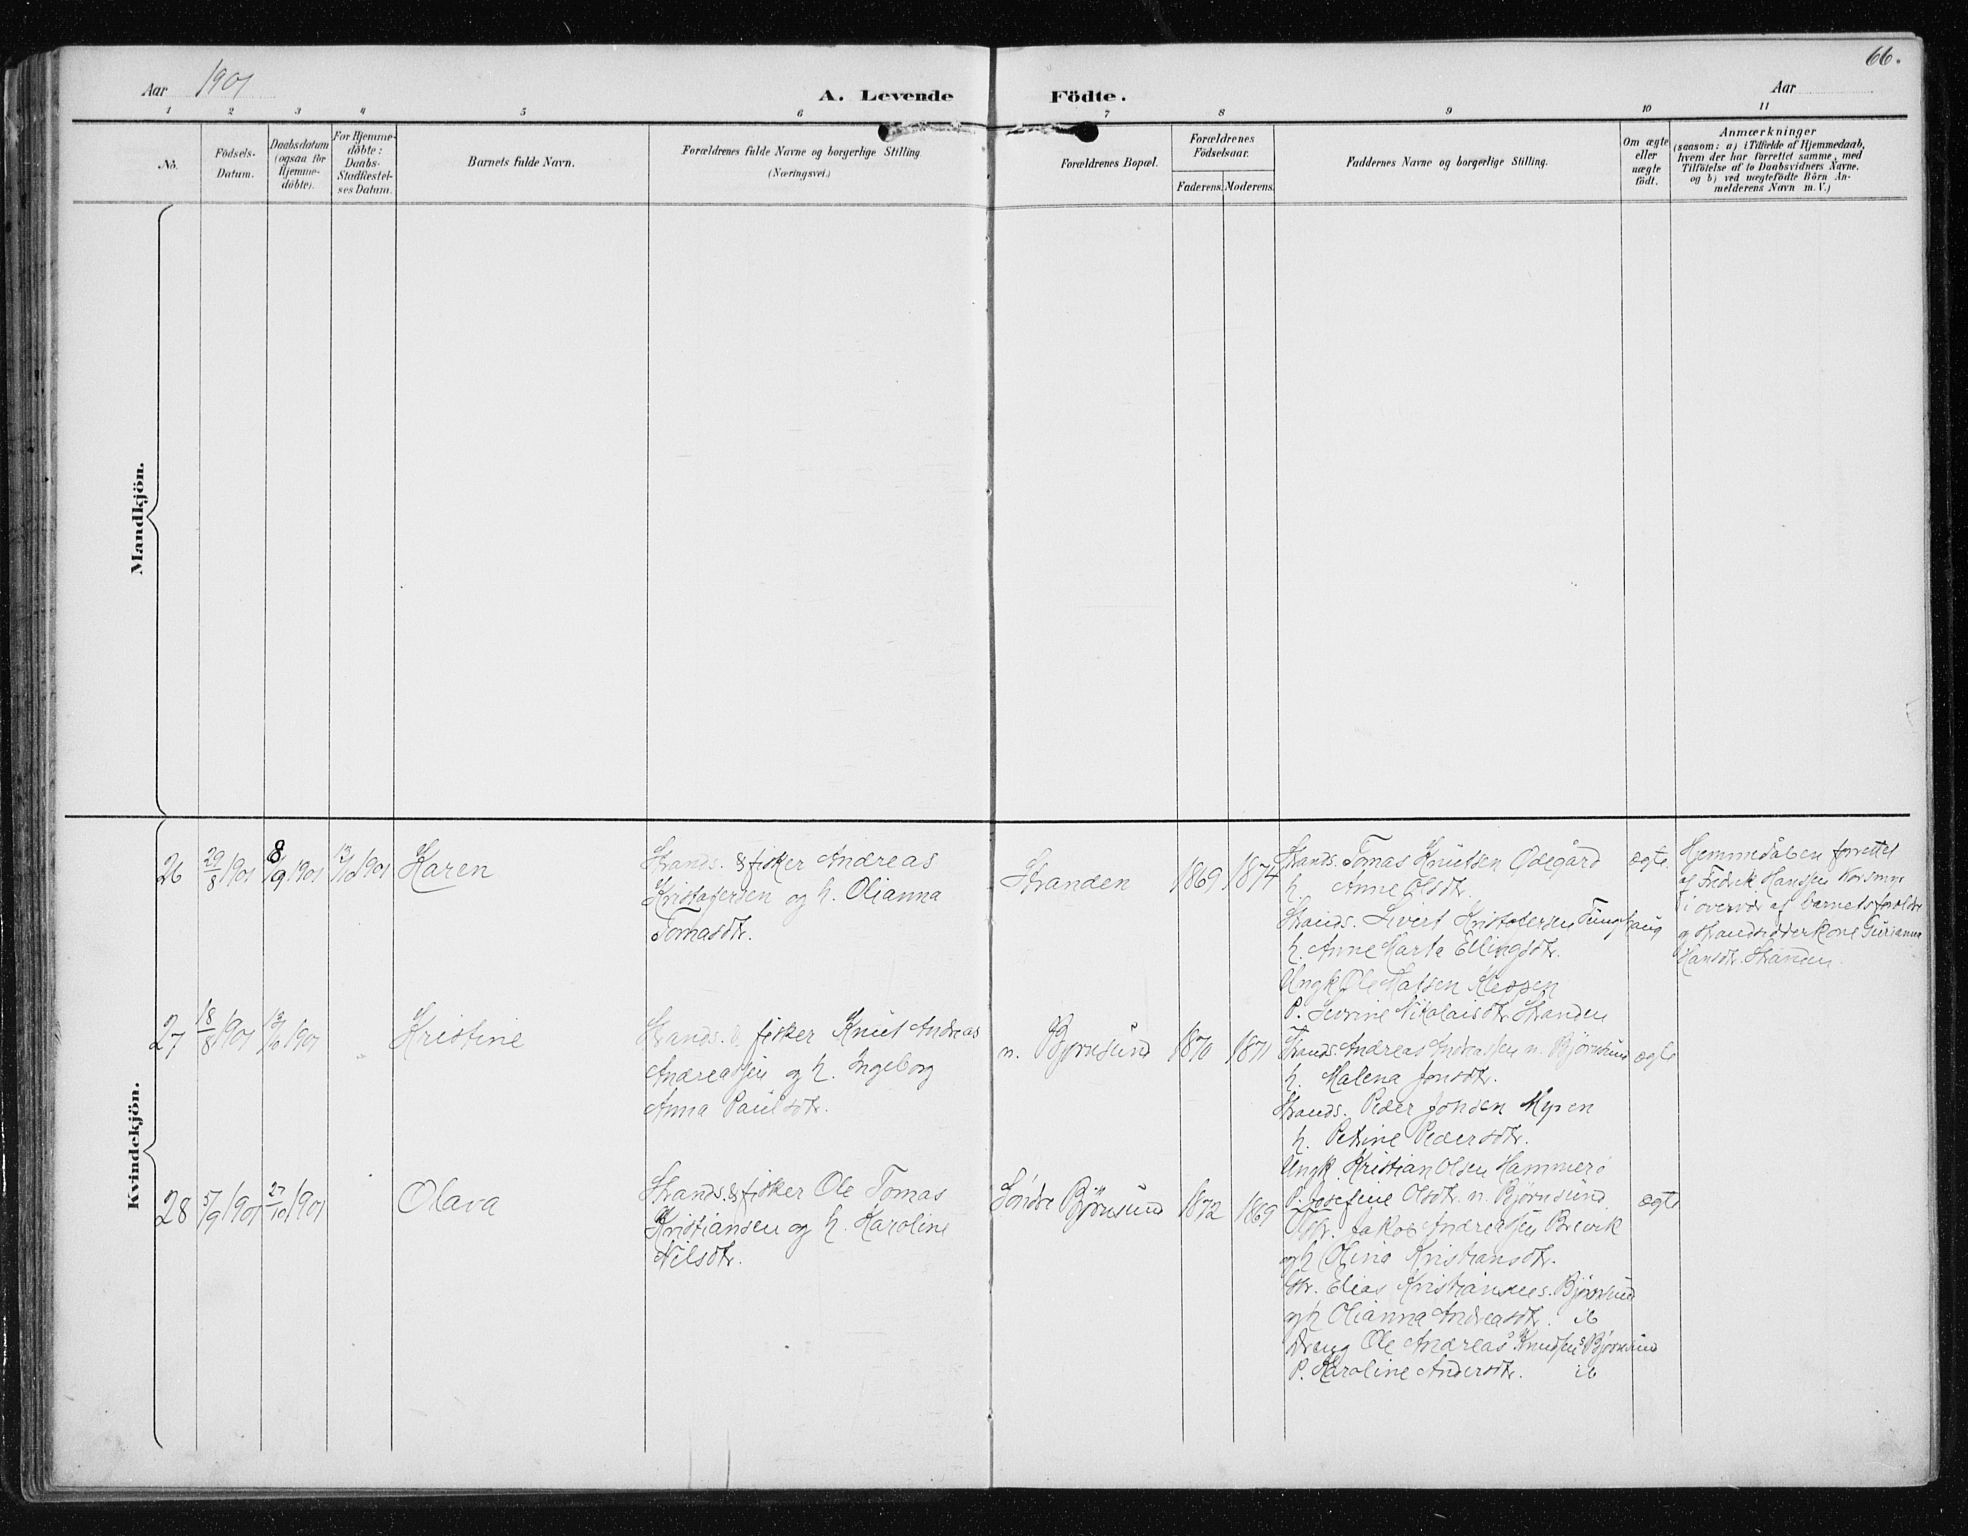 66.
Aar 1901
A. Levende Födte.
Aar
1 2 3 4 5 6 7 8 9 10 11
No.
Födsels-
Datum.
Daabsdatum
(ogsaa för
Hjemme-
döbte).
For Hjemme-
döbte:
Daabs-
Stadfæstel-
ses Datum.
Barnets fulde Navn.
Forældrenes fulde Navne og borgerlige Stilling.
(Næringsvei.)
Forældrenes Bopæl.
Forældrenes
Födselsaar.
Faderens. Moderens.
Faddernes Navne og borgerlige Stilling.
Om ægte
eller
uægte
födt.
Anmærkninger
(saasom: a) i Tilfælde af Hjemmedaab,
hvem der har forrettet samme, med
Tilföielse af to Daabsvidners Navne.
og b) ved uægtefödte Börn An-
melderens Navn m. V.)
Mandkjön.
Kvindekjön.
26 29/8 1901 8/9 1901 13/10 1901 Karen
Strands. & fisker Andreas
Kristofersen og h. Olianna
Tomasdtr.
Stranden 1869 1874
Strands. Tomas Knutsen Ødegård
h. Anne Olsdtr.
Strands. Sivert Kristofersen Tunghaug
h. Anne Marta Ellingsdtr.
Ungk. Ole Matsen
P. Sevrine Nikolaisdtr. Stranden
ægte
Hjemmedåben forrettet
af Fredrik Hanssen
i overvær af barnets forældre
og strandsidderkone Gurianna
Hansdtr. Stranden.
27 18/8 1901 13/10 1901 Kristine
Strands. & fisker Knut Andreas
Andreassen og h. Ingeborg
Anna Paulsdtr.
n. Bjørnsund 1870 1871
Strands. Andreas Andreassen n. Bjørnsund
h. Malena Jonsdtr.
Strands. Peder Jonsen Myren
h. Petrine Pedersdtr.
Ungk. Kristian Olsen Hammerø
P. Josefine Olsdtr. n. Bjørnsund
ægte
28 5/9 1901 27/10 1901 Olava
Strands. & fisker Ole Tomas
Kristiansen og h. Karoline
Nilsdtr.
Søndre Bjørnsund 1872 1869
Jakob Andreassen Brevik
og h Olina Kristiansdtr.
Str. Elias Kristiansen s. Bjørnsund
og h Olianna Andreasdtr. ib
Dreng Ole Andreas Knudsen s Bjørnsund
P. Karoline Andersdtr. ib
ægte